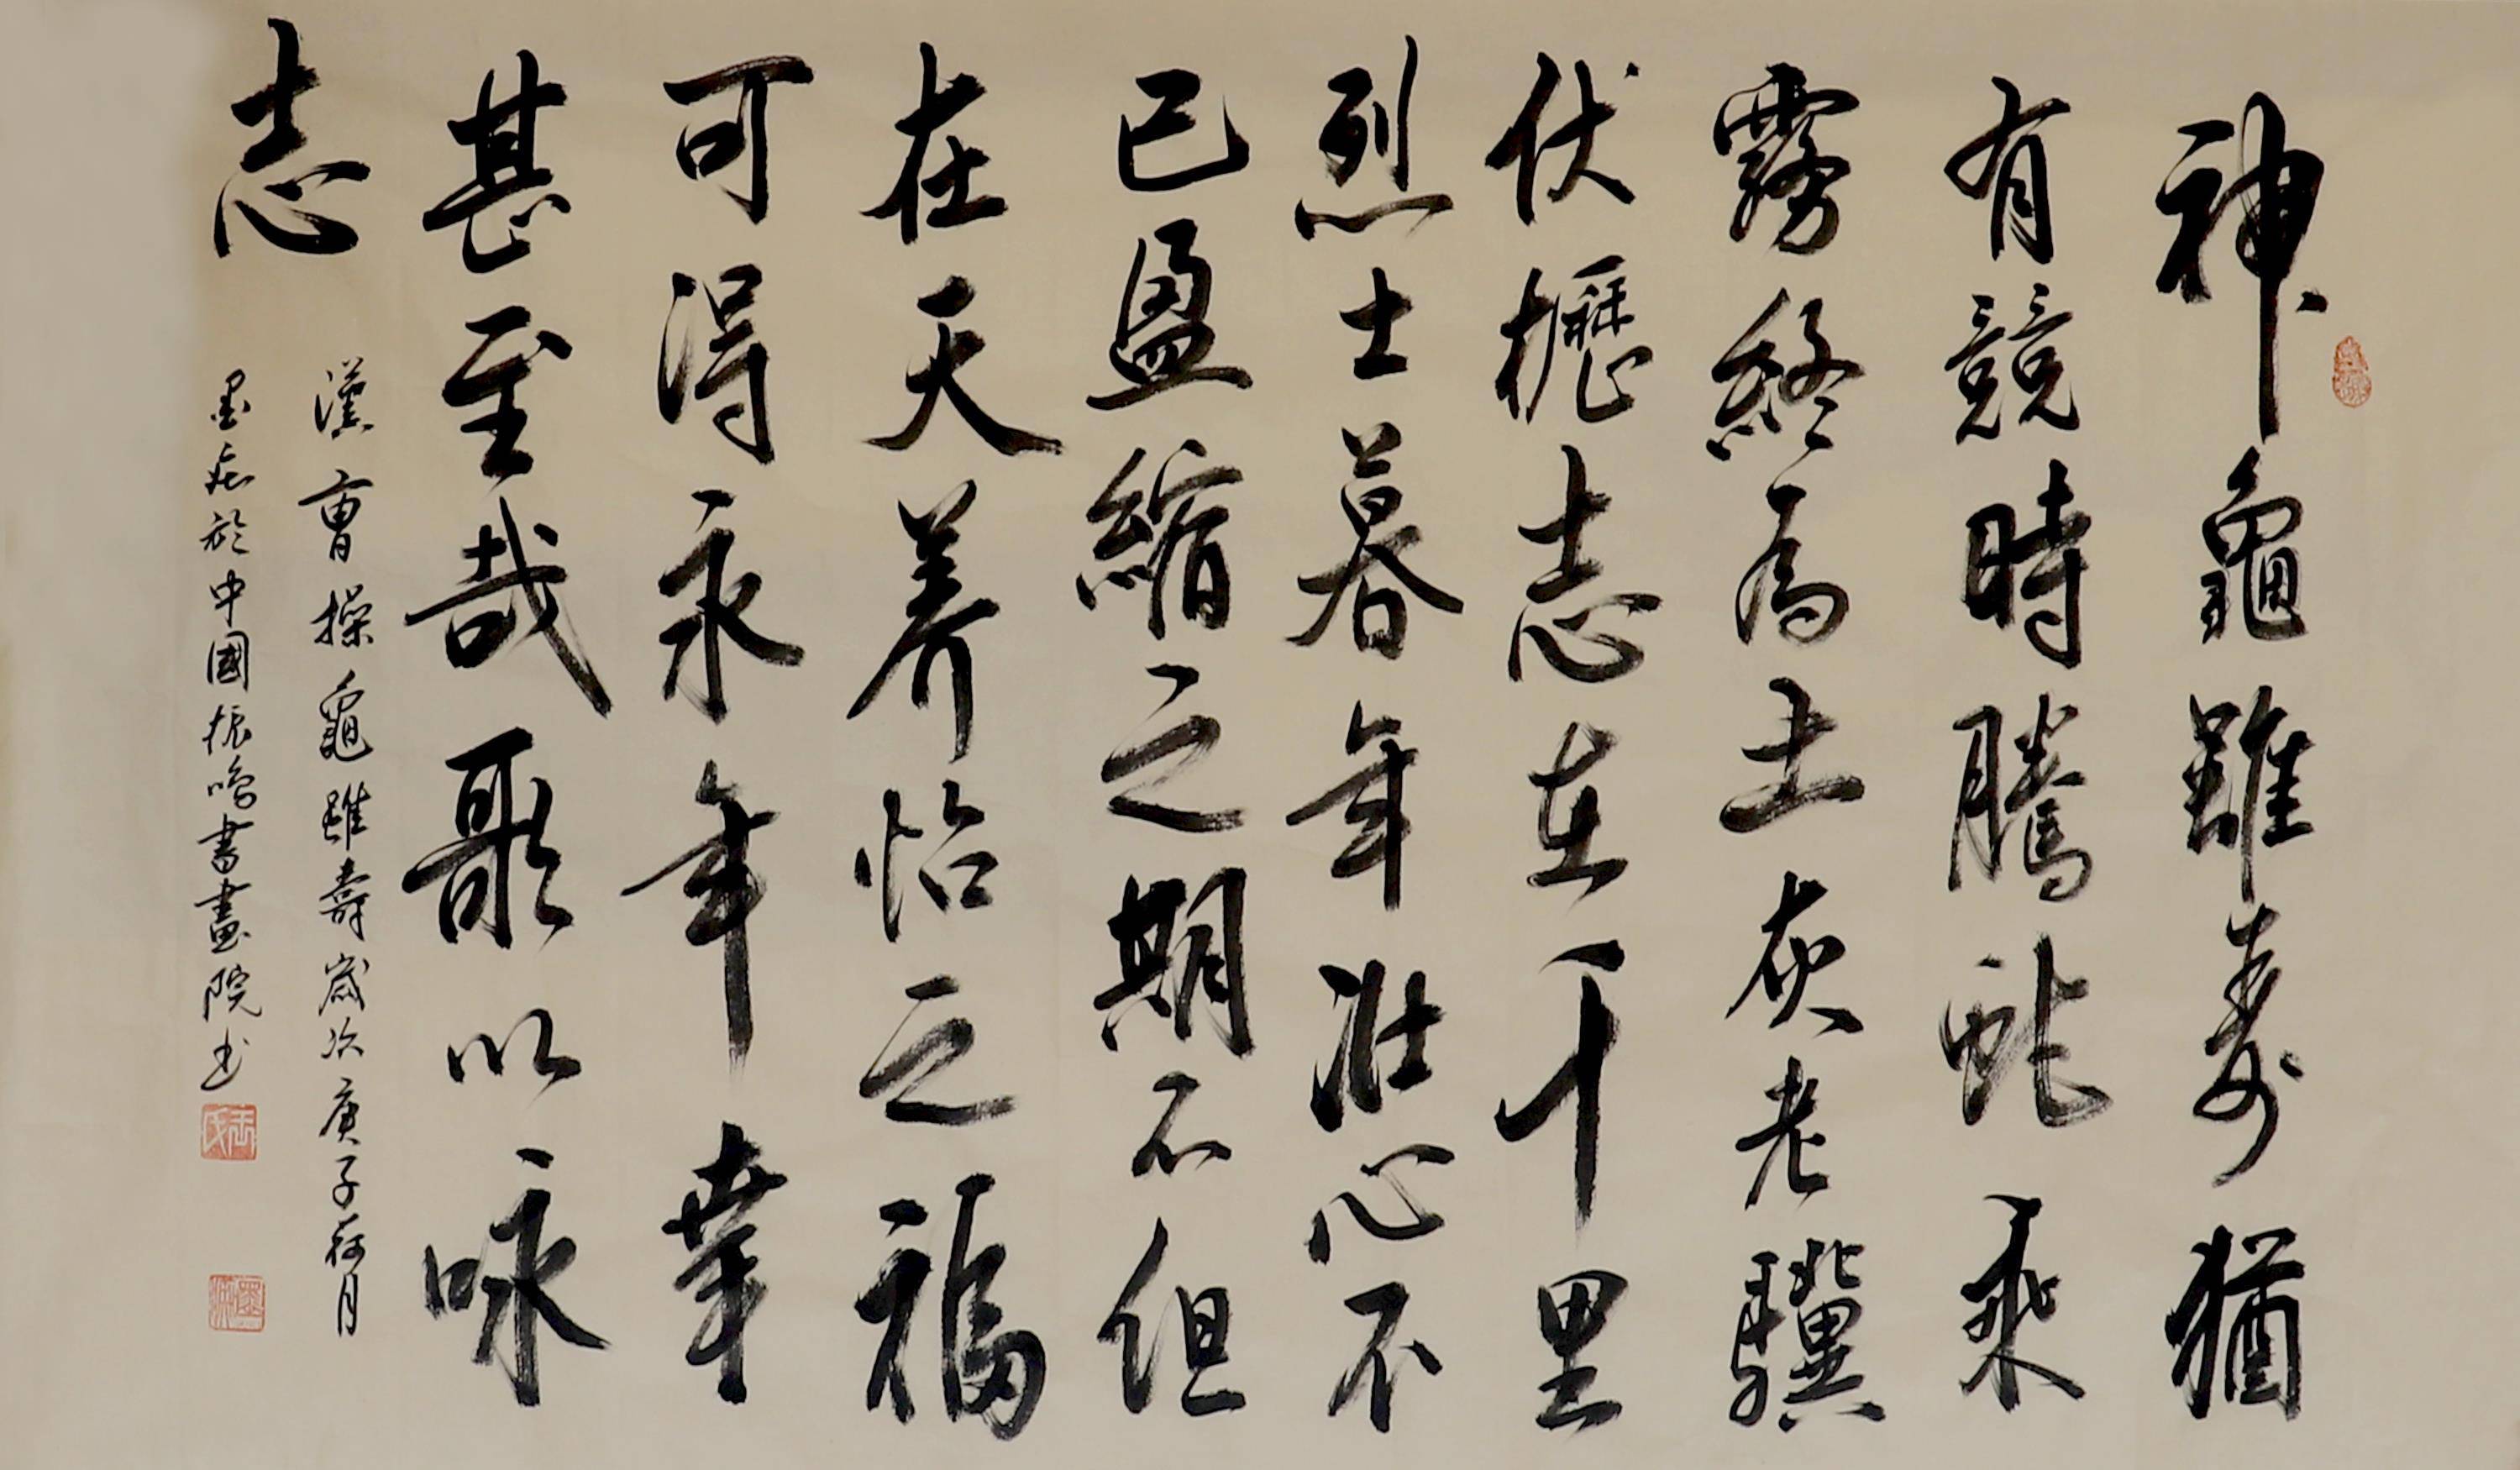 神龜雖壽猶
有競時騰蛇乘
霧終為土灰老驥
伏櫪志在千里
烈士暮年壯心不
已盈縮之期不但
在天養怡之福
可得永年幸
甚至哉歌以咏
志
漢曹操龜雖壽歲次庚子荷月
墨於中國振鳴書畫院书